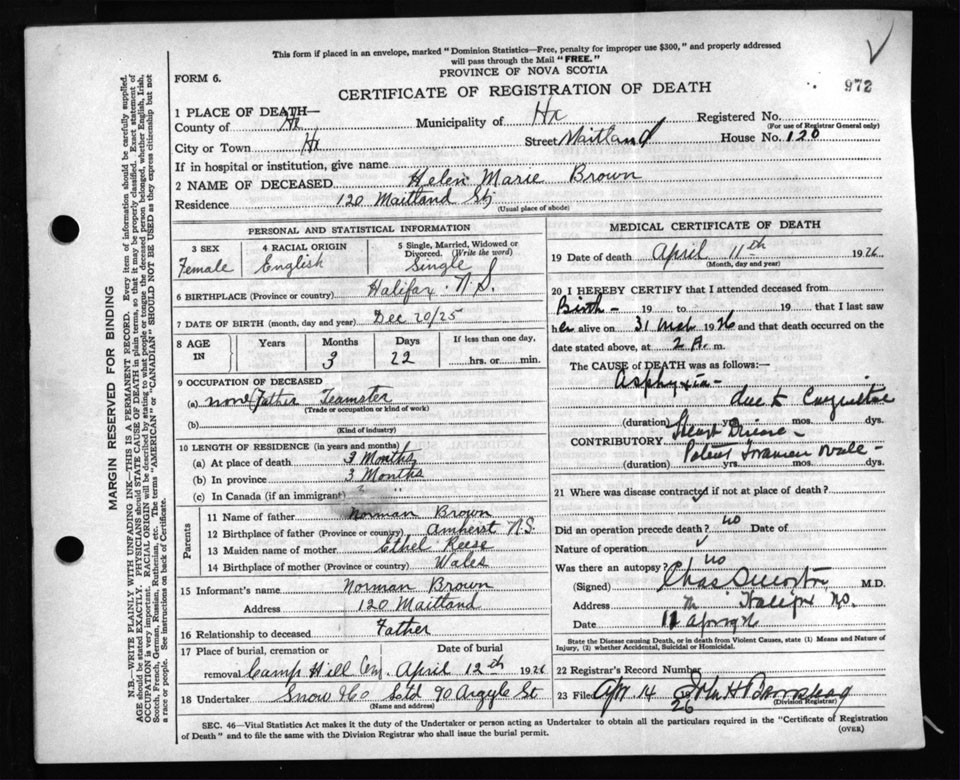 This form if placed in an envelope, marked "Dominion Statistics—Free, penalty for improper use $300," and properly addressed
will pass through the Mail "FREE."
FORM 6.
PROVINCE OF NOVA SCOTIA
CERTIFICATE OF REGISTRATION OF DEATH
972
1 PLACE OF DEATH—
County of Hx Municipality of Hx Registered No.
(For use of Registrar General only)
City or Town Hx Street Maitland House No. 120
If in hospital or institution, give name
2 NAME OF DECEASED Helen Marie Brown
Residence 120 Maitland St
(Usual place of abode)
PERSONAL AND STATISTICAL INFORMATION
3 SEX 4 RACIAL ORIGIN 5 Single, Married, Widowed or
Divorced. (Write the word)
Female English Single
6 BIRTHPLACE (Province or country) Halifax N.S.
7 DATE OF BIRTH (month, day and year) Dec 20/25
8 AGE IN Years Months Days If less than one day,
3 22 hrs. or min.
9 OCCUPATION OF DECEASED
(a) none (Father Teamster
(Trade or occupation or kind of work)
(b)
(Kind of industry)
10 LENGTH OF RESIDENCE (in years and months)
(a) At place of death 3 Months
(b) In province 3 Months
(c) In Canada (if an immigrant) " "
Parents
11 Name of father Norman Brown
12 Birthplace of father (Province or country) Amherst N.S.
13 Maiden name of mother Ethel Reese
14 Birthplace of mother (Province or country) Wales
15 Informant's name Norman Brown
Address 120 Maitland
16 Relationship to deceased Father
17 Place of burial, cremation or Date of burial
removal Camp Hill Cem. April 12th 1926
18 Undertaker Snow & Co Ltd 90 Argyle St
(Name and address)
MEDICAL CERTIFICATE OF DEATH
19 Date of death April 11th 1926
(Month, day and year)
20 I HEREBY CERTIFY that I attended deceased from
Birth – 19 to 19 that I last saw
her alive on 31 Mch 1926 and that death occurred on
date stated above, at 2 A. m.
The CAUSE OF DEATH was as follows:—
Asphyxia –
due to Congenital
(duration) yrs. mos. dys.
Heart Disease –
CONTRIBUTORY
Patent Foramen Ovale –
(duration) yrs. mos. dys.
21 Where was disease contracted if not at place of death?
Did an operation precede death? no Date of
Nature of operation
Was there an autopsy? no
(Signed) Chas M.D.
Address Halifax N.S.
Date 11 April 26
State the Disease causing Death, or in death from Violent Causes, state (1) Means and Nature of
Injury, (2) whether Accidental, Suicidal or Homicidal.
22 Registrar's Record Number
23 Filed Apr 14 26 John H
(Division Registrar)
SEC. 46—Vital Statistics Act makes it the duty of the Undertaker or person acting as Undertaker to obtain all the particulars required in the "Certificate of Registration
of Death" and to file the same with the Division Registrar who shall issue the burial permit.
(OVER)
MARGIN RESERVED FOR BINDING
N.B.—WRITE PLAINLY WITH UNFADING INK—THIS IS A PERMANENT RECORD. Every item of information should be carefully supplied.
AGE should be stated EXACTLY. PHYSICIANS should STATE CAUSE OF DEATH in plain terms, so that it may be properly classified. Exact statement of
OCCUPATION is very important. RACIAL ORIGIN will be described by stating to what people or tongue the deceased person belonged, whether English, Irish,
Scotch, French, German, Russian, Ruthenian, etc. The terms "AMERICAN" or "CANADIAN" SHOULD NOT BE USED as they express citizenship but not
a race or people. See instructions on back of Certificate.